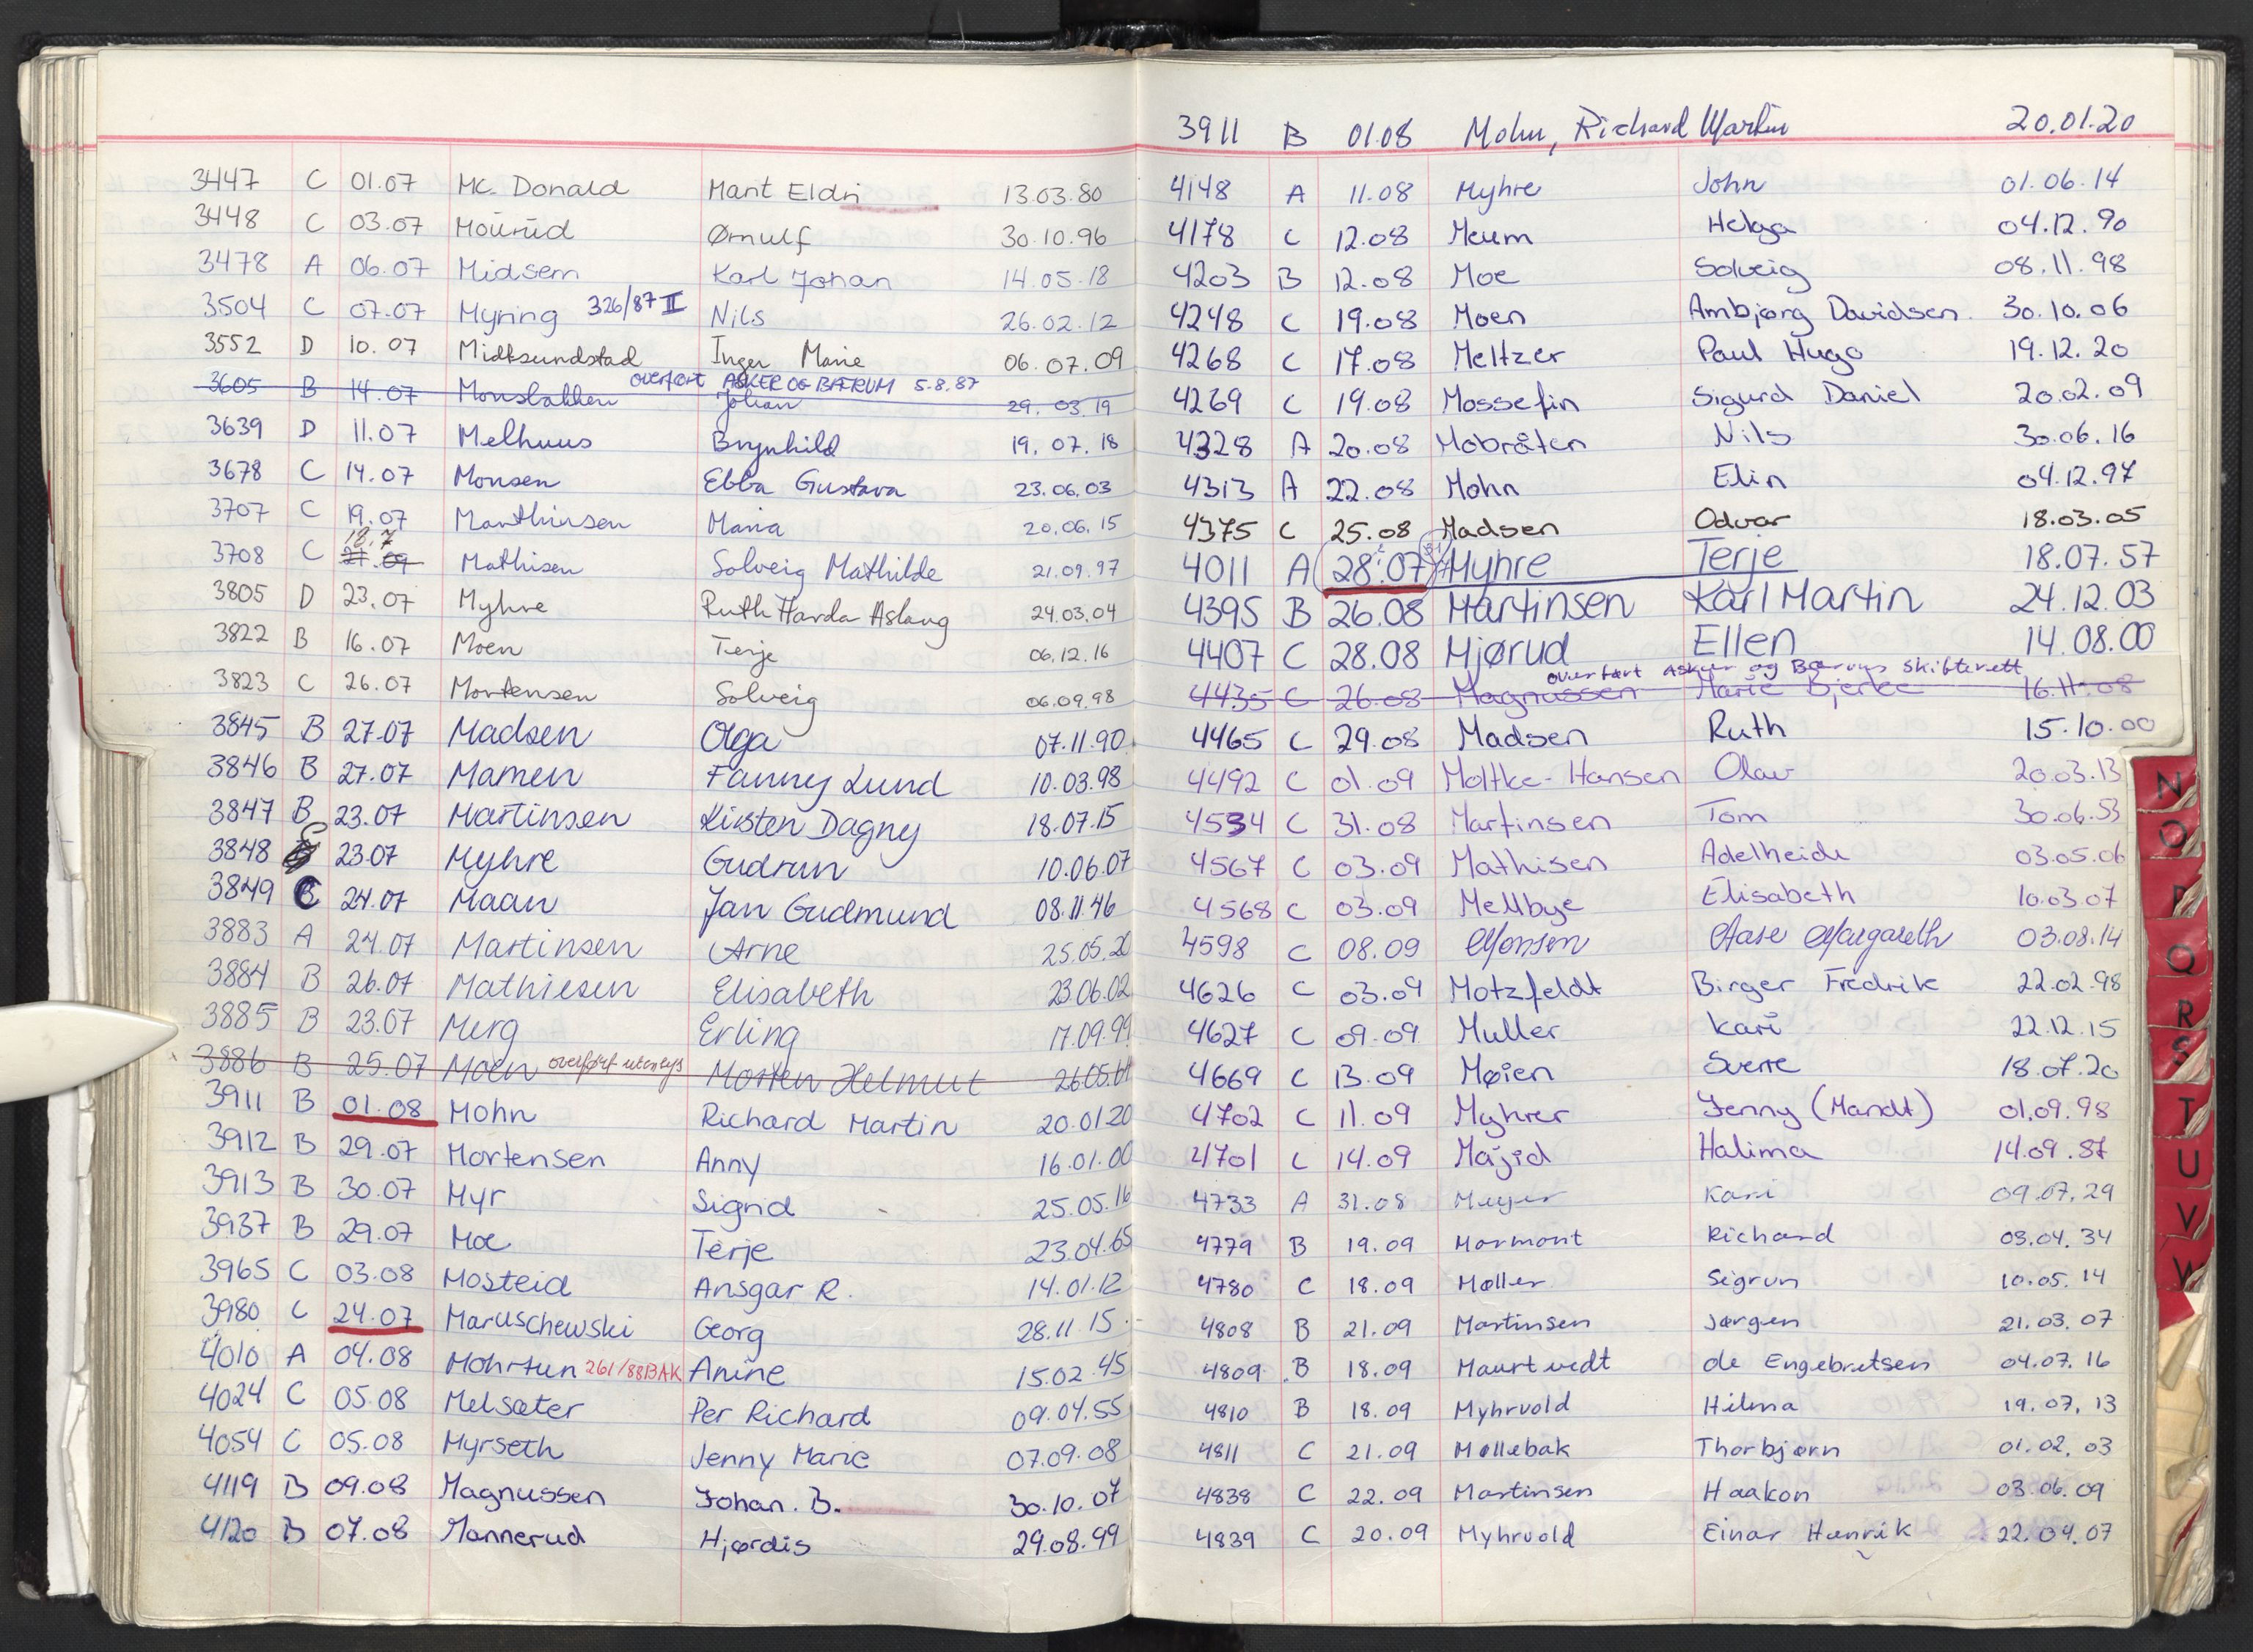 3447 C 01.07 Mc. Donald Marit Eldri 13.03.80
3448 C 03.07 Mourud Ørnulf 30.10.96
3478 A 06.07 Midsem Karl Johan 14.05.18
3504 C 07.07 Myring 326/87 II Nils 26.02.12
3552 D 10.07 Midtsundstad Inger Marie 06.07.09
overført ASKER OG BÆRUM 5.8.87
3605 B 14.07 Monsbakken Johan 29.03.19
3639 D 11.07 Melhuus Brynhild 19.07.18
3678 C 14.07 Monsen Ebba Gustava 23.06.03
3707 C 19.07 Marthinsen Maria 20.06.15
18.7
3708 C 21.09 Mathisen Solveig Mathilde 21.09.97
3805 D 23.07 Myhre Ruth Harda Aslaug 24.03.04
3822 B 16.07 Moen Terje 06.12.16
3823 C 26.07 Mortensen Solveig 06.09.98
3845 B 27.07 Madsen Olga 07.11.90
3846 B 27.07 Mamen Fanny Lund 10.03.98
3847 B 23.07 Martinsen Kirsten Dagny 18.07.15
3848 C 23.07 Myhre Gudrun 10.06.07
3849 C 24.07 Maan Jan Gudmund 08.11.46
3883 A 24.07 Martinsen Arne 25.05.20
3884 B 26.07 Mathiesen Elisabeth 23.06.02
3885 B 23.07 Merg Erling 17.09.99
3886 B 25.07 Moen overført Morten Helmut 26.05.61
3911 B 01.08 Mohn Richard Martin 20.01.20
3912 B 29.07 Mortensen Anny 16.01.00
3913 B 30.07 Myr Sigrid 25.05.16
3937 B 29.07 Moe Terje 23.04.65
3965 C 03.08 Mosteid Ansgar R. 14.01.12
3980 C 24.07 Maruschewski Georg 28.11.15
4010 A 04.08 Mohrtun 261/88BAK Anine 15.02.45
4024 C 05.08 Melsæter Per Richard 09.04.55
4054 C 05.08 Myrseth Jenny Marie 07.09.08
4119 B 09.08 Magnussen Johan. B. 30.10.07
4120 B 07.08 Mannerud Hjørdis 29.08.99
3911 B 01.08 Mohn, Richard Martin 20.01.20
4148 A 11.08 Myhre John 01.06.14
4178 C 12.08 Meum Helga 04.12.90
4203 B 12.08 Moe Solveig 08.11.98
4248 C 19.08 Moen Ambjørg Davidsen. 30.10.06
4268 C 17.08 Meltzer Paul Hugo 19.12.20
4269 C 19.08 Mossefin Sigurd Daniel 20.02.09
4328 A 20.08 Mobråten Nils 30.06.16
4313 A 22.08 Mohn Elin 04.12.97
4375 C 25.08 Madsen Odvar 18.03.05
4011 A 28.07 Myhre Terje 18.07.57
4395 B 26.08 Martinsen Karl Martin 24.12.03
4407 C 28.08 Mjørud Ellen 14.08.00
overført Asker og Bærum skifterett
4435 C 26.08 Magnussen Marie Bjerke 16.11.08
4465 C 29.08 Madsen Ruth 15.10.00
4492 C 01.09 Moltke-Hansen Olav 20.03.13
4534 C 31.08 Martinsen Tom 30.06.53
4567 C 03.09 Mathisen Adelheide 03.05.06
4568 C 03.09 Mellbye Elisabeth 10.03.07
4598 C 08.09 Monsen Aase Margareth 03.08.14
4626 C 03.09 Motzfeldt Birger Fredrik 22.02.98
4627 C 09.09 Muller Kari 22.12.15
4669 C 13.09 Møien Sverre 18.07.20
4702 C 11.09 Myhrer Jenny (Mandt) 01.09.98
4701 C 14.09 Majid Halima 14.09.87
4733 A 31.08 Meyer Kari 09.07.29
4779 B 19.09 Mormont Richard 03.04.34
4780 C 18.09 Møller Sigrun 10.05.14
4808 B 21.09 Martinsen Jørgen 21.03.07
4809 B 18.09 Maurtvedt de Engebretsen 04.07.16
4810 B 18.09 Myhrvold Hilma 19.07.13
4811 C 21.09 Møllebak Thorbjørn 01.02.03
4838 C 22.09 Martinsen Haakon 03.06.09
4839 C 20.09 Myhrvold Einar Henrik 22.04.07
N
O
P
Q
R
S
T
U
V
W